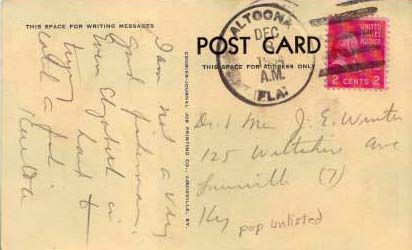 THIS SPACE FOR WRITING MESSAGES
I am not a very
good fisherman.
hard to
with a fish
COURIER-JOURNAL JOB PRINTING CO., LOUISVILLE, KY.
POST CARD
THIS SPACE FOR ADDRESS ONLY
ALTOONA
DEC
A.M.
FLA.
UNITED
STATES
POSTAGE
2 CENTS 2
Dr. & Mrs. J. E. Winter
125 Wiltshire Ave
Louisville (7)
Ky
pop unlisted